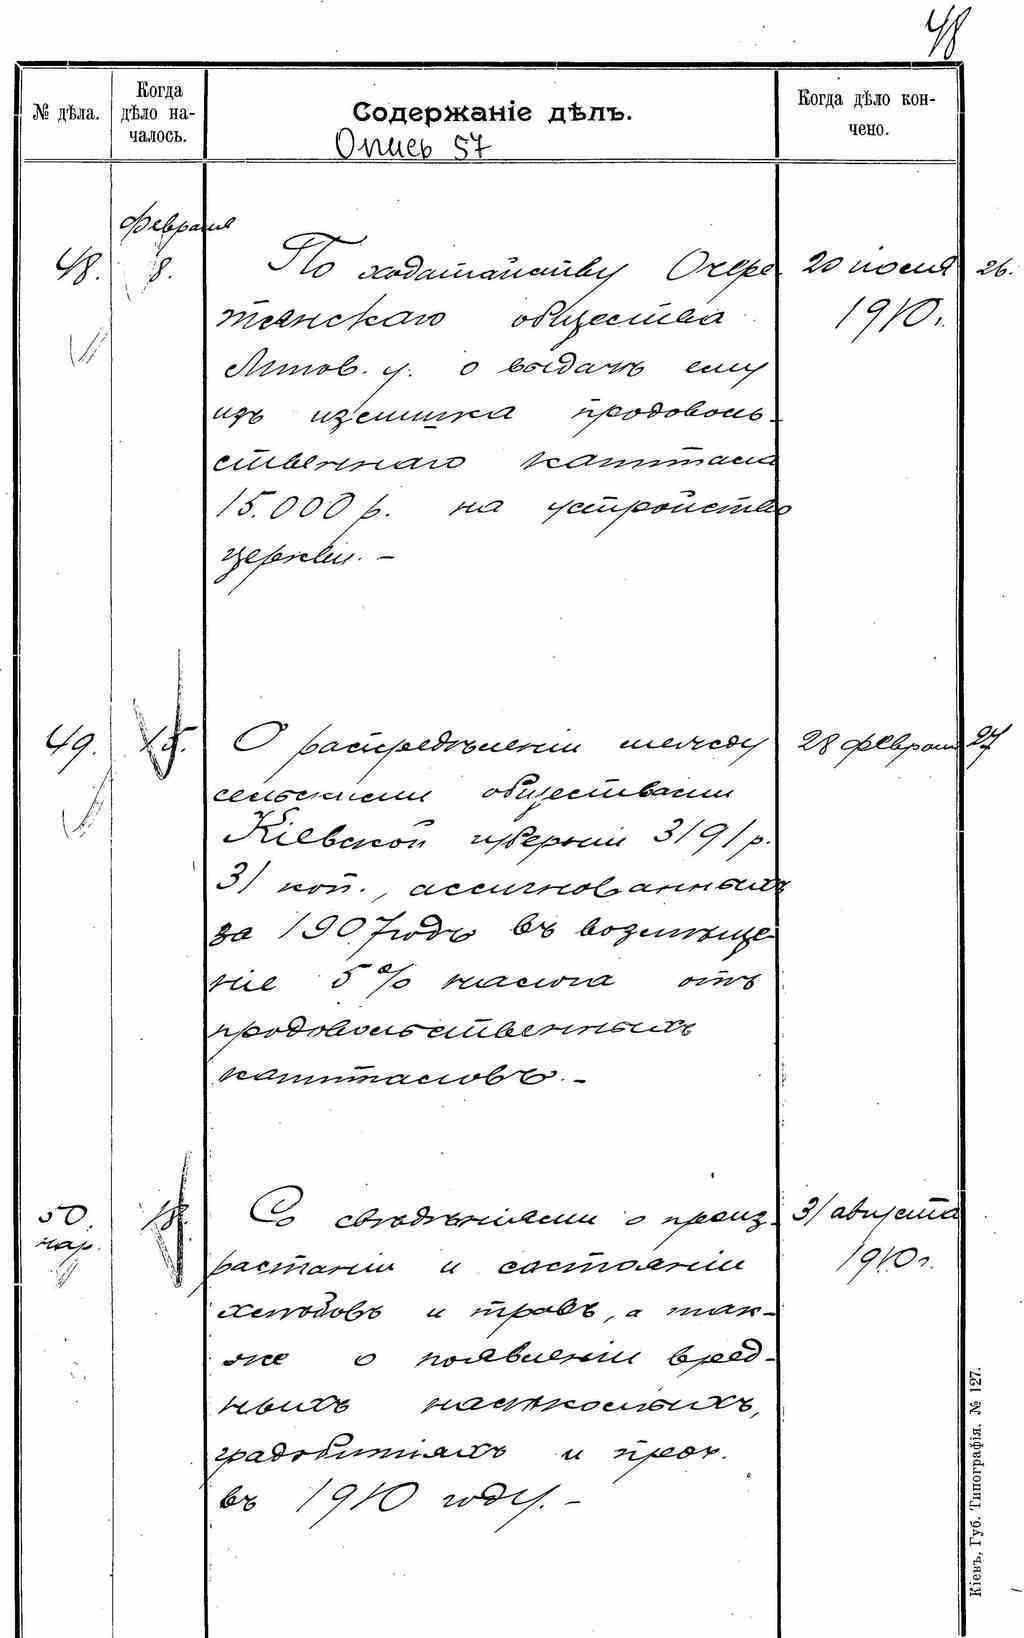 48
№ дѣла.
Когда
дѣло на-
чалось.
Содержаніе дѣлъ.
Когда дѣло кон-
чено.
Опись 57
февраля
48.
8.
По ходатайству Очере-
тянскаго общества
Липов. у. о выдачѣ ему
изъ излишка продоволь-
ственнаго капитала
15.000 р. на устройство
церкви. –
20 іюля
1910г.
26.
49.
15.
О распредѣленіи между
сельскими обществами
Кіевской губерніи 3191 р.
31 коп., ассигнованныхъ
за 1907 годъ въ возмѣще-
ніе 5% налога отъ
продовольственныхъ
капиталовъ. –
28 февраля
27
50.
нар.
18.
Со свѣдѣніями о произ-
растаніи и состояніи
хлѣбовъ и травъ, а так-
же о появленіи вред-
ныхъ насѣкомыхъ,
градобитіяхъ и проч.
въ 1910 году. –
31 августа
1910г.
Кіевъ, Губ. Типографія. № 127.